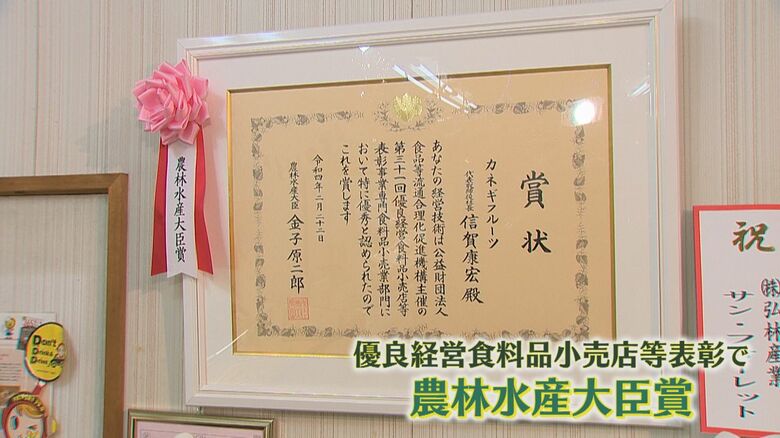 賞状
カネギフルーツ
代表取締役社長 信賀康宏殿
あなたの経営技術は公益財団法人
食品等流通合理化促進機構主催の
第三十一回優良経営食料品小売店等
表彰事業専門食料品小売業部門に
おいて特に優秀と認められたので
これを賞します
令和四年二月二十二日
農林水産大臣 金子原二郎
農林水産大臣賞
祝
㈱弘林産業
サン・フラ・レット
Don't
Drink &
Drive
優良経営食料品小売店等表彰で
農林水産大臣賞